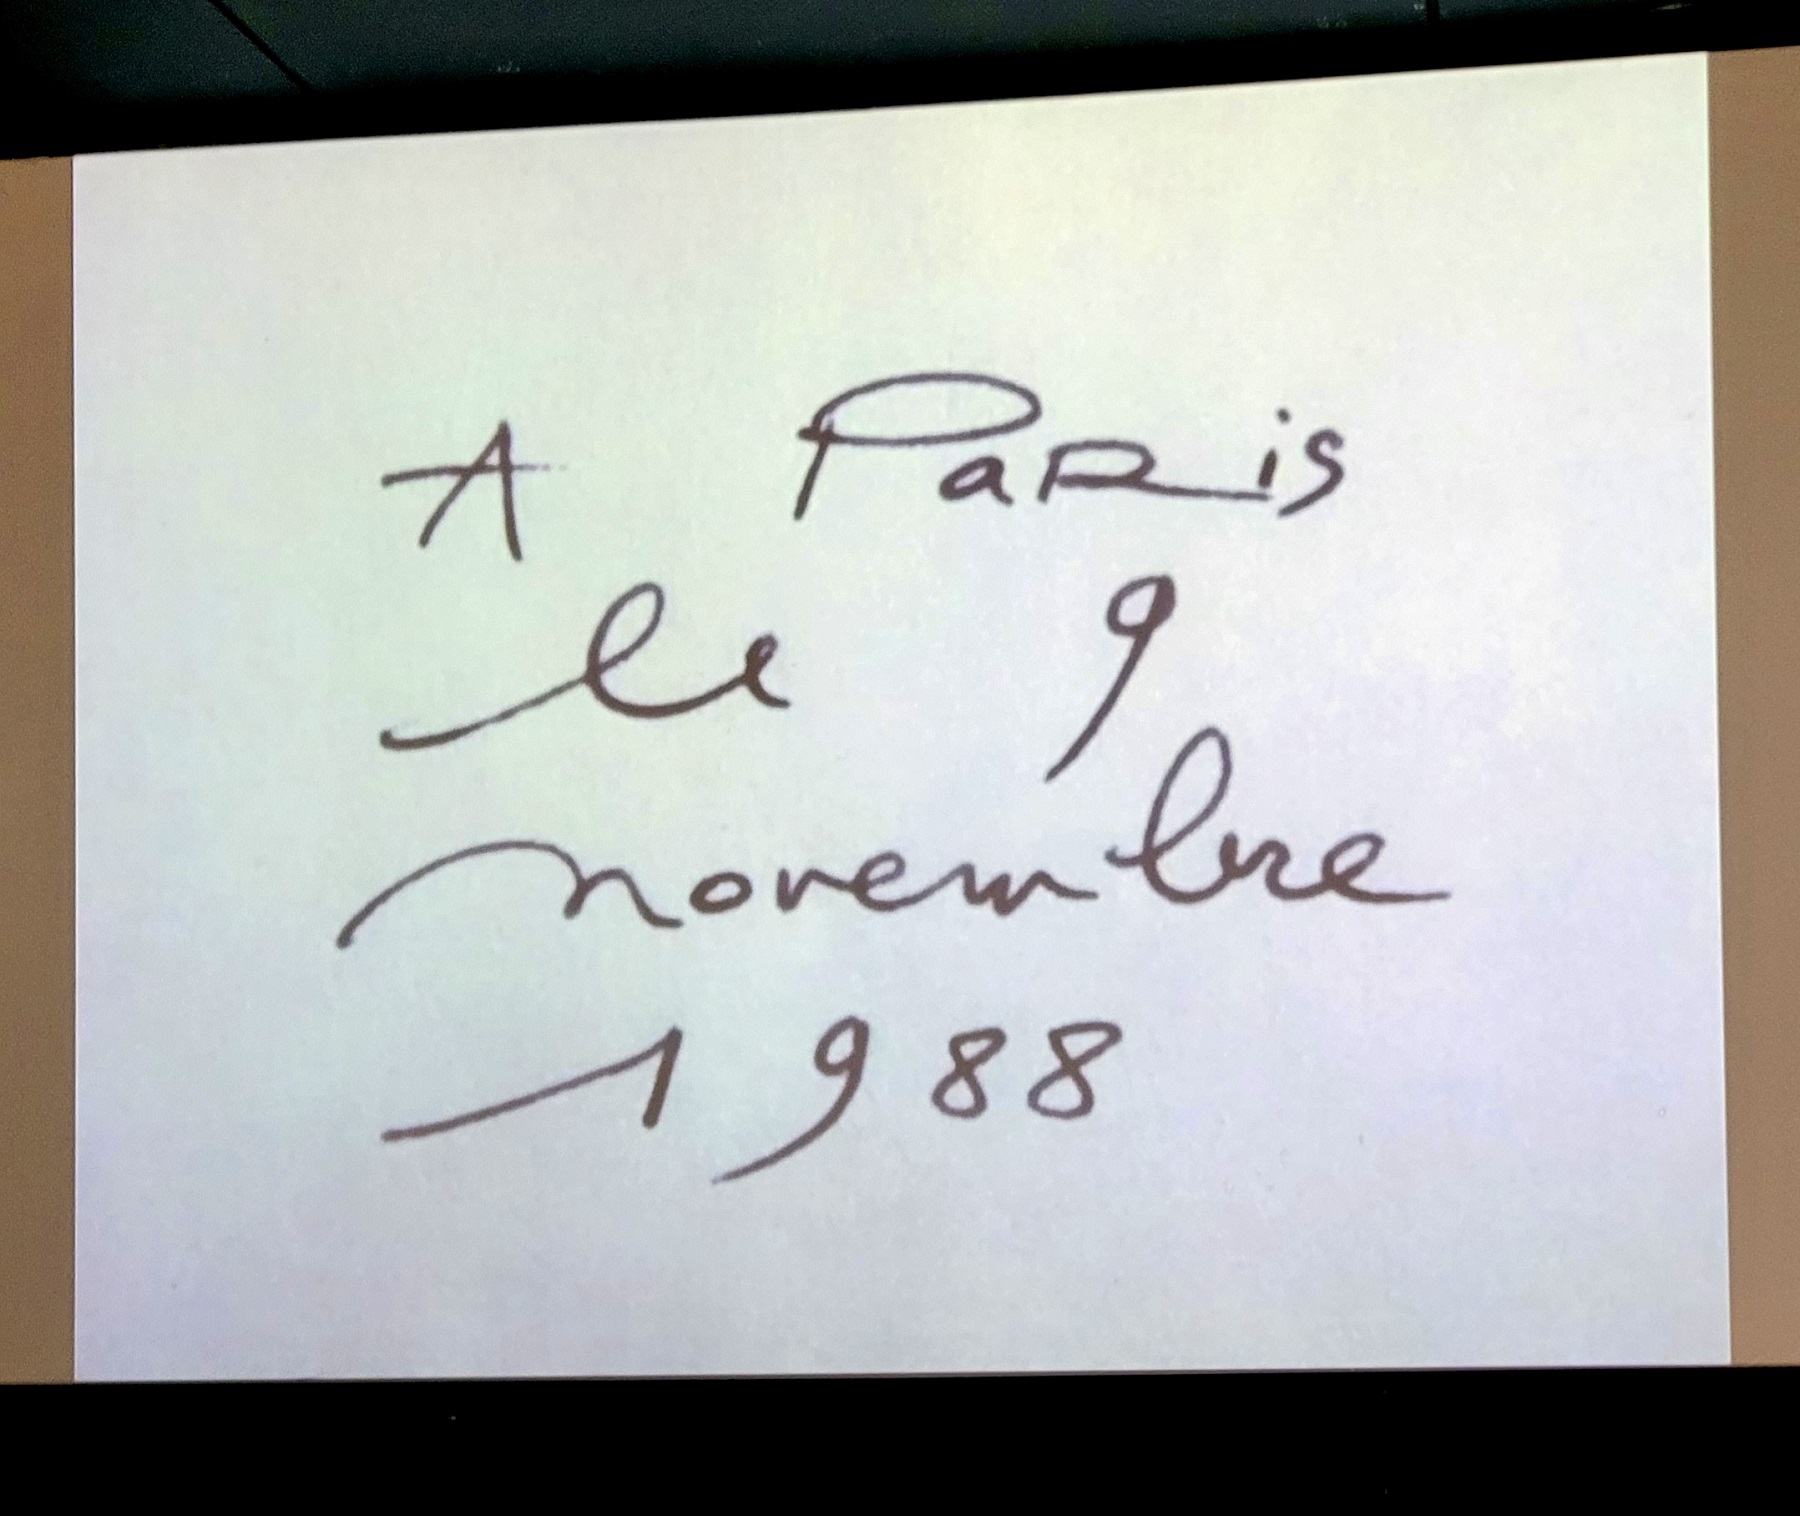 A Paris
le 9
novembre
1988